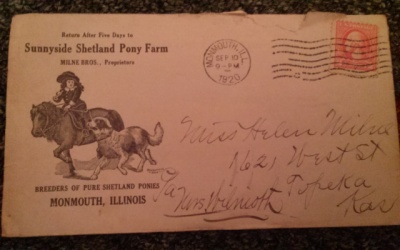 Return After Five Days to
Sunnyside Shetland Pony Farm
MILNE BROS., Proprietors
BREEDERS OF PURE SHETLAND PONIES
MONMOUTH, ILLINOIS
MONMOUTH, ILL.
SEP 10
9-PM
1920
Miss Helen Milne
1621 West St
Topeka
Kas